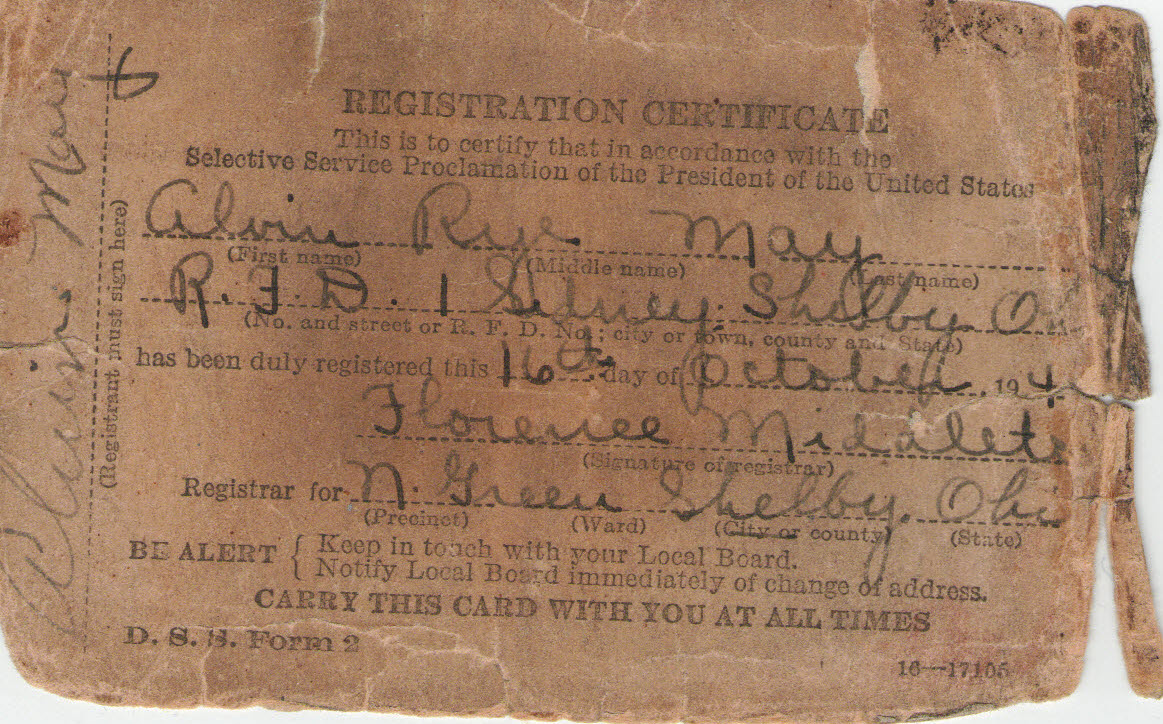 REGISTRATION CERTIFICATE
This is to certify that in accordance with the
Selective Service Proclamation of the President of the United States
Alvin Rye May
(First name) (Middle name) (Last name)
R.F.D. 1 Sidney Shelby
(No. and street or R. F. D. No.; city or town, county and State)
has been duly registered this 16th day of October, 194
Florence
(Signature of registrar)
Registrar for N. Green Shelby, Ohi
(Precinct) (Ward) (City or county) (State)
BE ALERT { Keep in touch with your Local Board.
Notify Local Board immediately of change of address.
CARRY THIS CARD WITH YOU AT ALL TIMES
D. S. S. Form 2
16—17105
(Registrant must sign here)
Alvin May